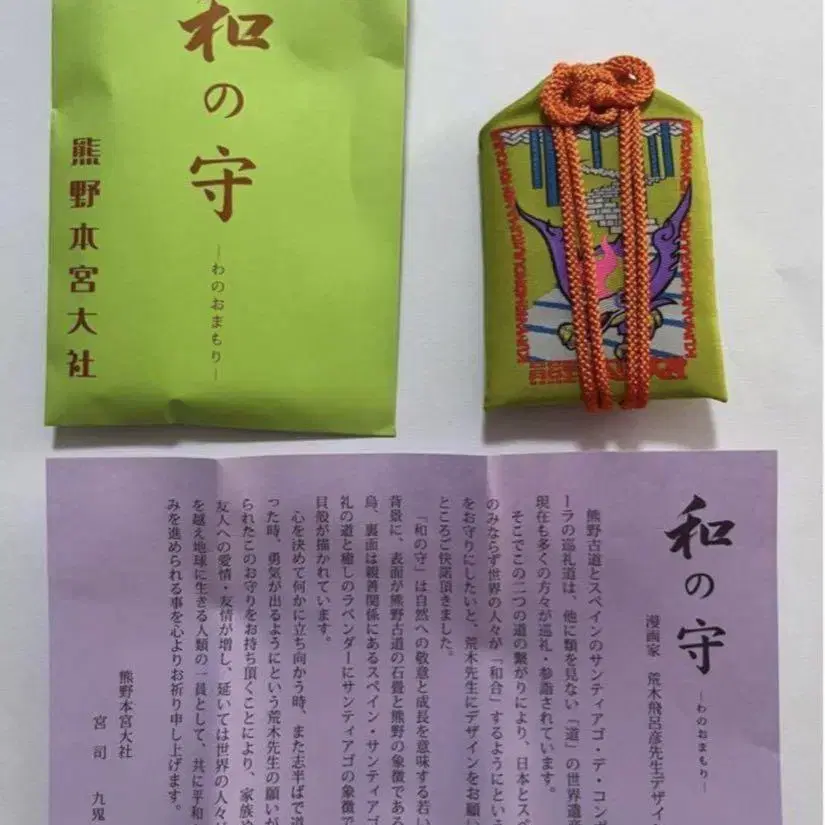 和の守
―わのおまもり―
熊野本宮大社
和の守
―わのおまもり―
漫画家 荒木飛呂彦先生デザイ
熊野古道とスペインのサンティアゴ・デ・コンポ
ーラの巡礼道は、他に類を見ない「道」の世界遺産
現在も多くの方々が巡礼・参詣されています。
そこでこの二つの道の繋がりにより、日本とスペ
のみならず世界の人々が「和合」するようにという
をお守りにしたいと、荒木先生にデザインをお願い
ところご快諾頂きました。
「和の守」は自然への敬意と成長を意味する若い
背景に、表面が熊野古道の石畳と熊野の象徴である
烏、裏面は親善関係にあるスペイン・サンティアゴ
礼の道と癒しのラベンダーにサンティアゴの象徴で
貝殻が描かれています。
心を決めて何かに立ち向かう時、また志半ばで道
った時、勇気が出るようにという荒木先生の願いが
られたこのお守りをお持ち頂くことにより、家族や
友人への愛情・友情が増し、延いては世界の人々が
を越え地球に生きる人類の一員として、共に平和
みを進められる事を心よりお祈り申し上げます。
熊野本宮大社
宮司 九鬼